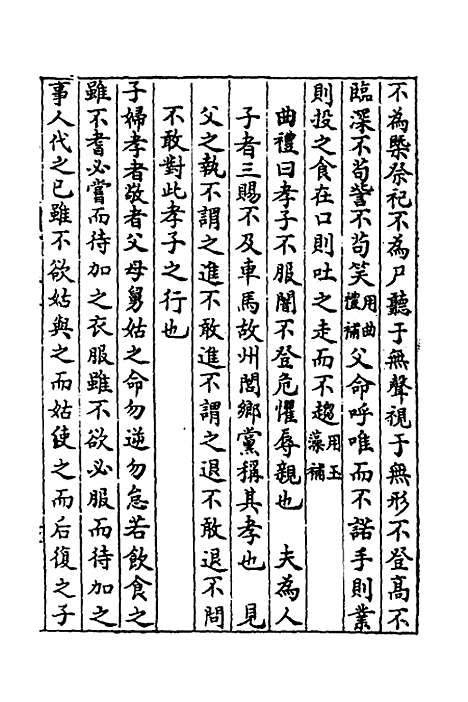 不為槩祭祀不為尸聽于無聲視于無形不登高不
臨深不苟訾不苟笑用曲禮補父命呼唯而不諾手則業
則投之食在口則吐之走而不趨用玉藻補
曲禮曰孝子不服闇不登危懼辱親也　夫為人
子者三賜不及車馬故州閭鄉黨稱其孝也　見
父之執不謂之進不敢進不謂之退不敢退不問
不敢對此孝子之行也
子婦孝者敬者父母舅姑之命勿逆勿怠若飲食之
雖不耆必嘗而待加之衣服雖不欲必服而待加之
事人代之已雖不欲姑與之而姑使之而后復之子